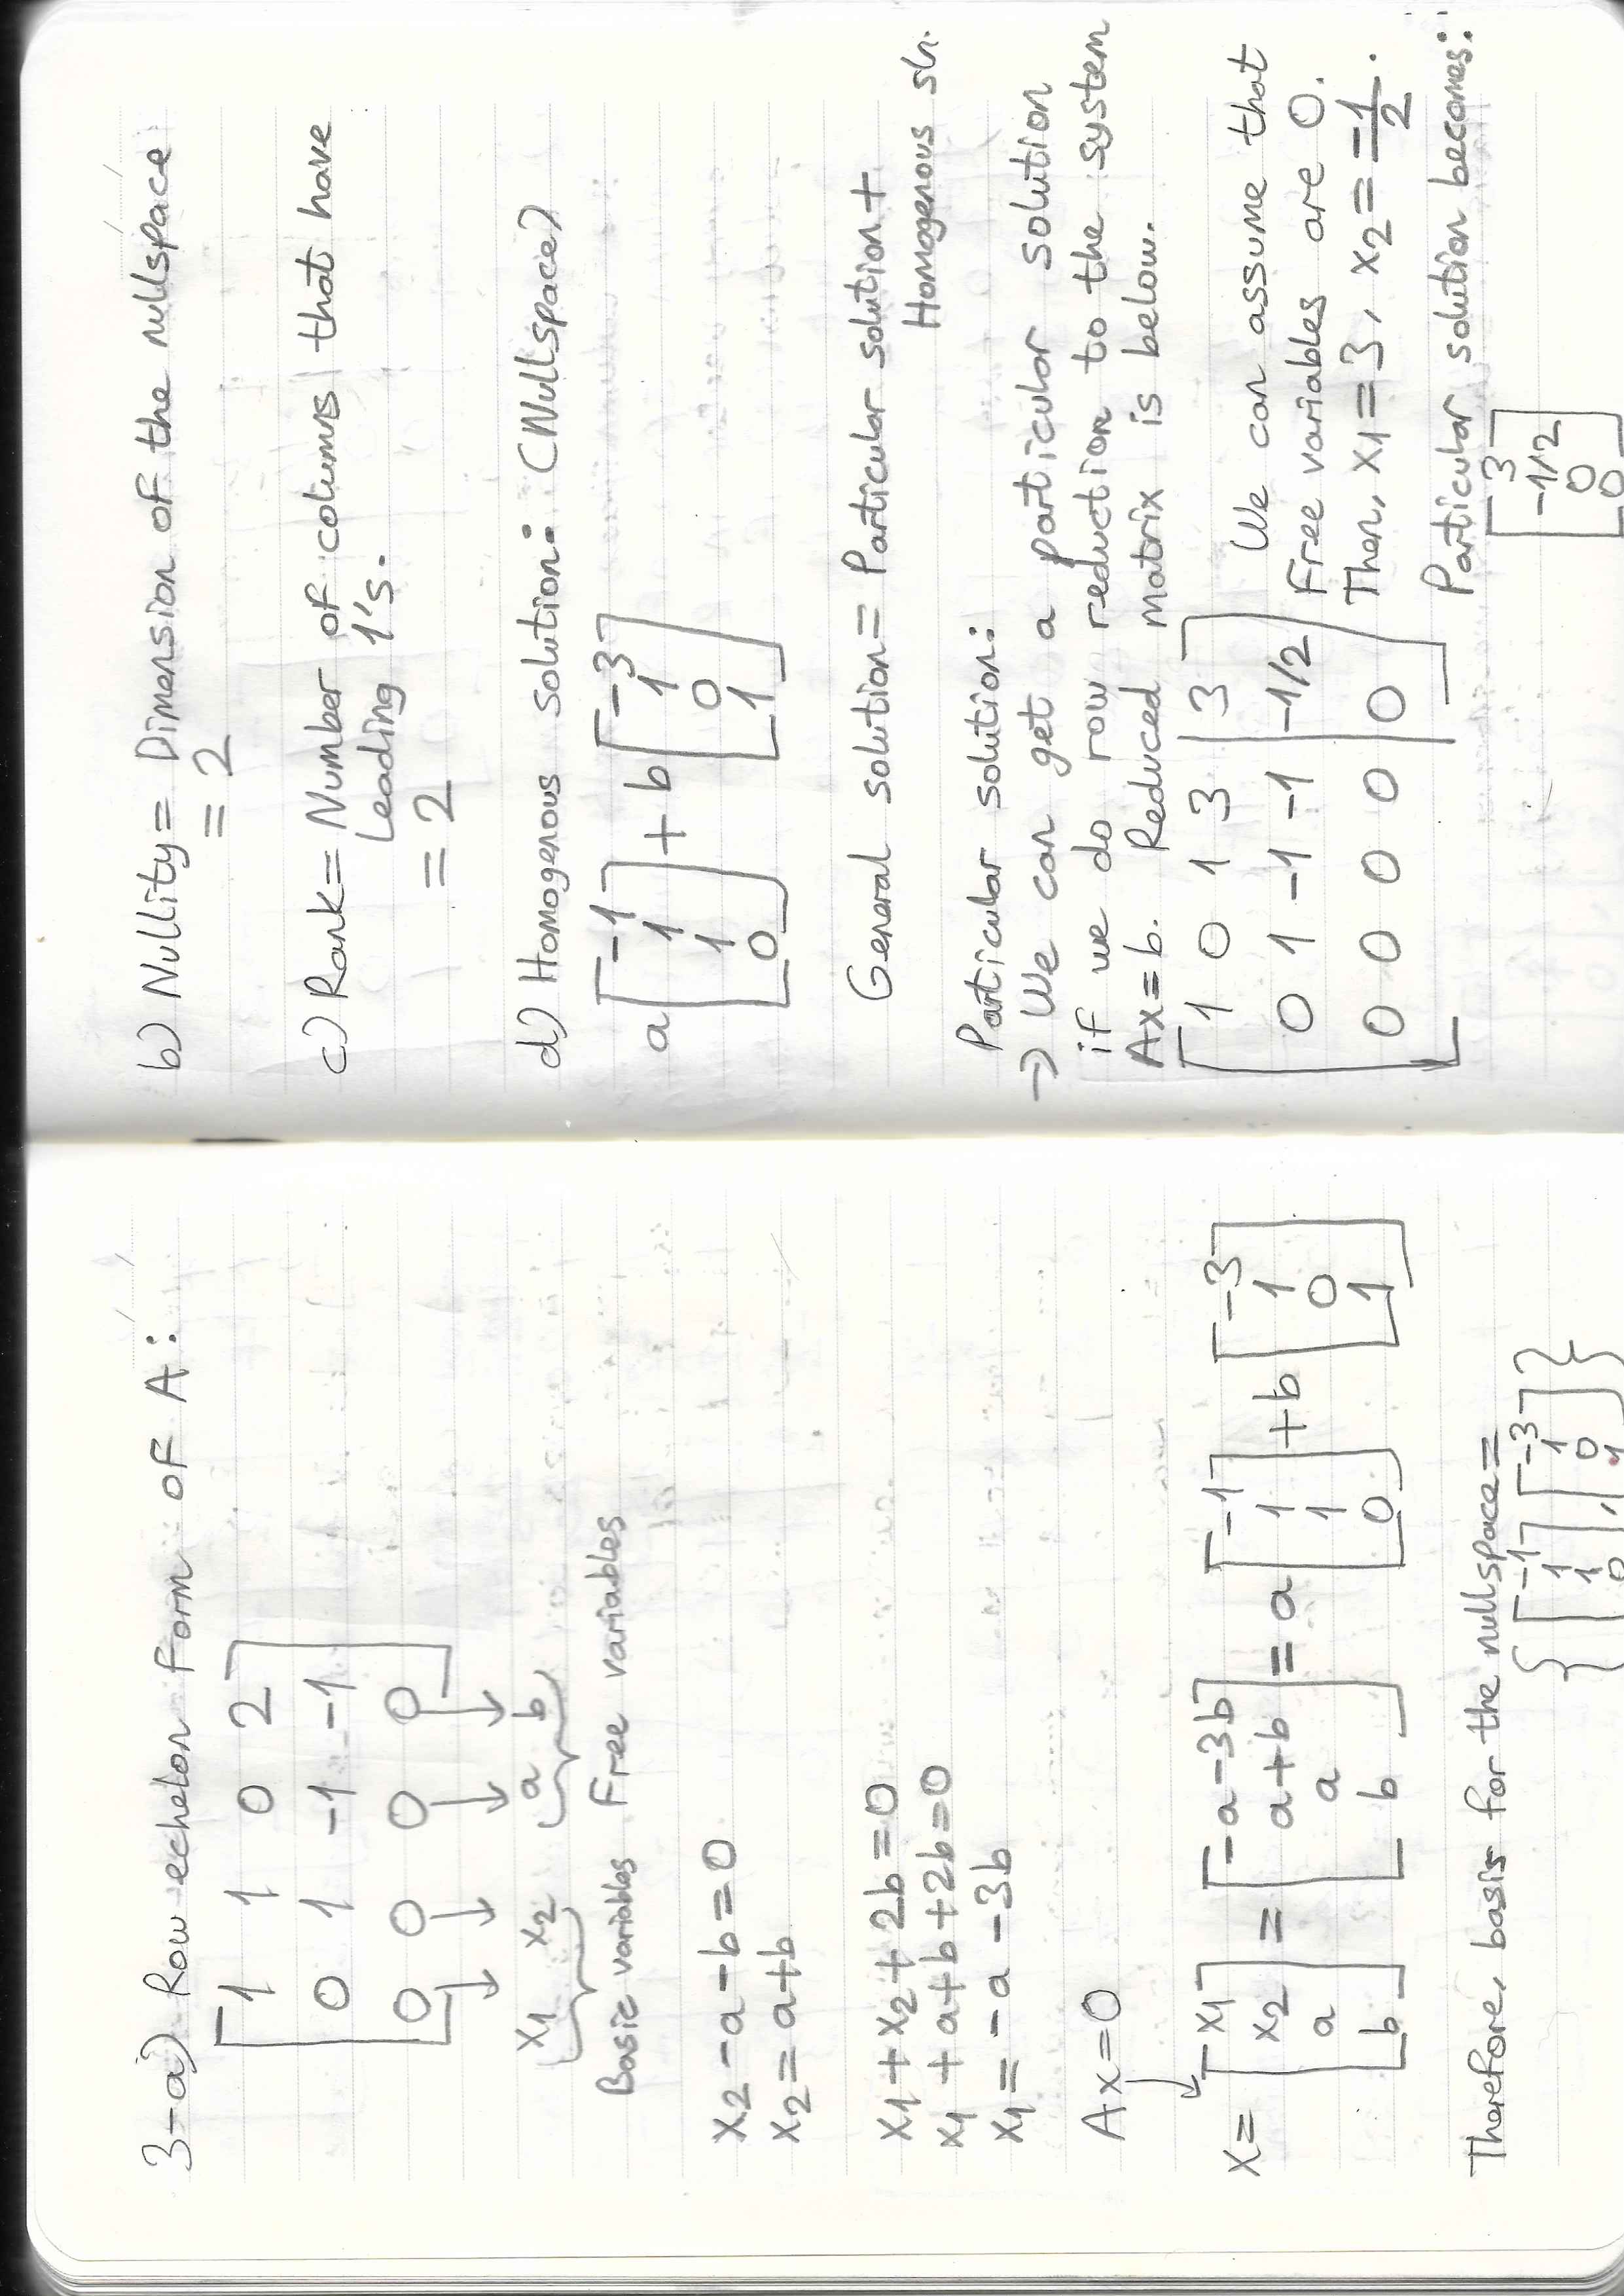 3-a) Row echelon form of A:
1 1 0 2
0 1 -1 -1
0 0 0 0
x1 x2 a b
Basic variables Free variables
x2 - a - b = 0
x2 = a+b
x1 + x2 + 2b = 0
x1 + a+b+2b=0
x1 = -a -3b
Ax=0
x= [x1 x2 a b] = [-a-3b a+b a b] = a [-1 1 1 0] + b [-3 1 0 1]
Therefore, basis for the nullspace=
{ [-1 1 1 0], [-3 1 0 1] }
b) Nullity = Dimension of the nullspace
= 2
c) Rank = Number of columns that have
Leading 1's.
= 2
d) Homogenous solution: (Nullspace)
a [-1 1 1 0] + b [-3 1 0 1]
General solution = Particular solution +
Homogenous sln.
Particular solution:
→ We can get a particular solution
if we do row reduction to the system
Ax=b. Reduced matrix is below.
1 0 1 3 | 3
0 1 -1 -1 | -1/2
0 0 0 0 | 0
We can assume that
Free variables are 0.
Then, x1 = 3, x2 = -1/2.
Particular solution becomes:
3
-1/2
0
0